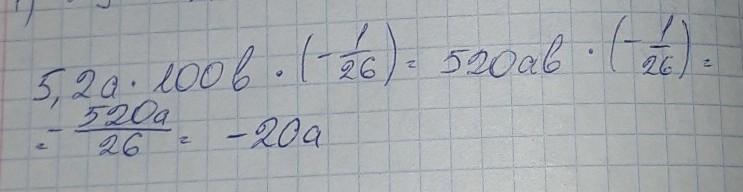 5,2a · 100b · (-1/26) = 520ab · (-1/26) =
= -520a/26 = -20a